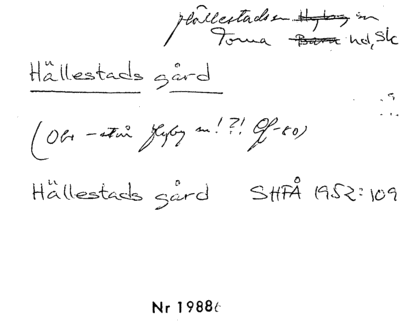 Hällestads sn ~~Hyby~~ sn
Torna ~~Bara~~ hd, Sk
Hällestads gård
(Obs – står Hyby sn!?! Gf-80)
Hällestads gård SHFÅ 1952:109
Nr 1988